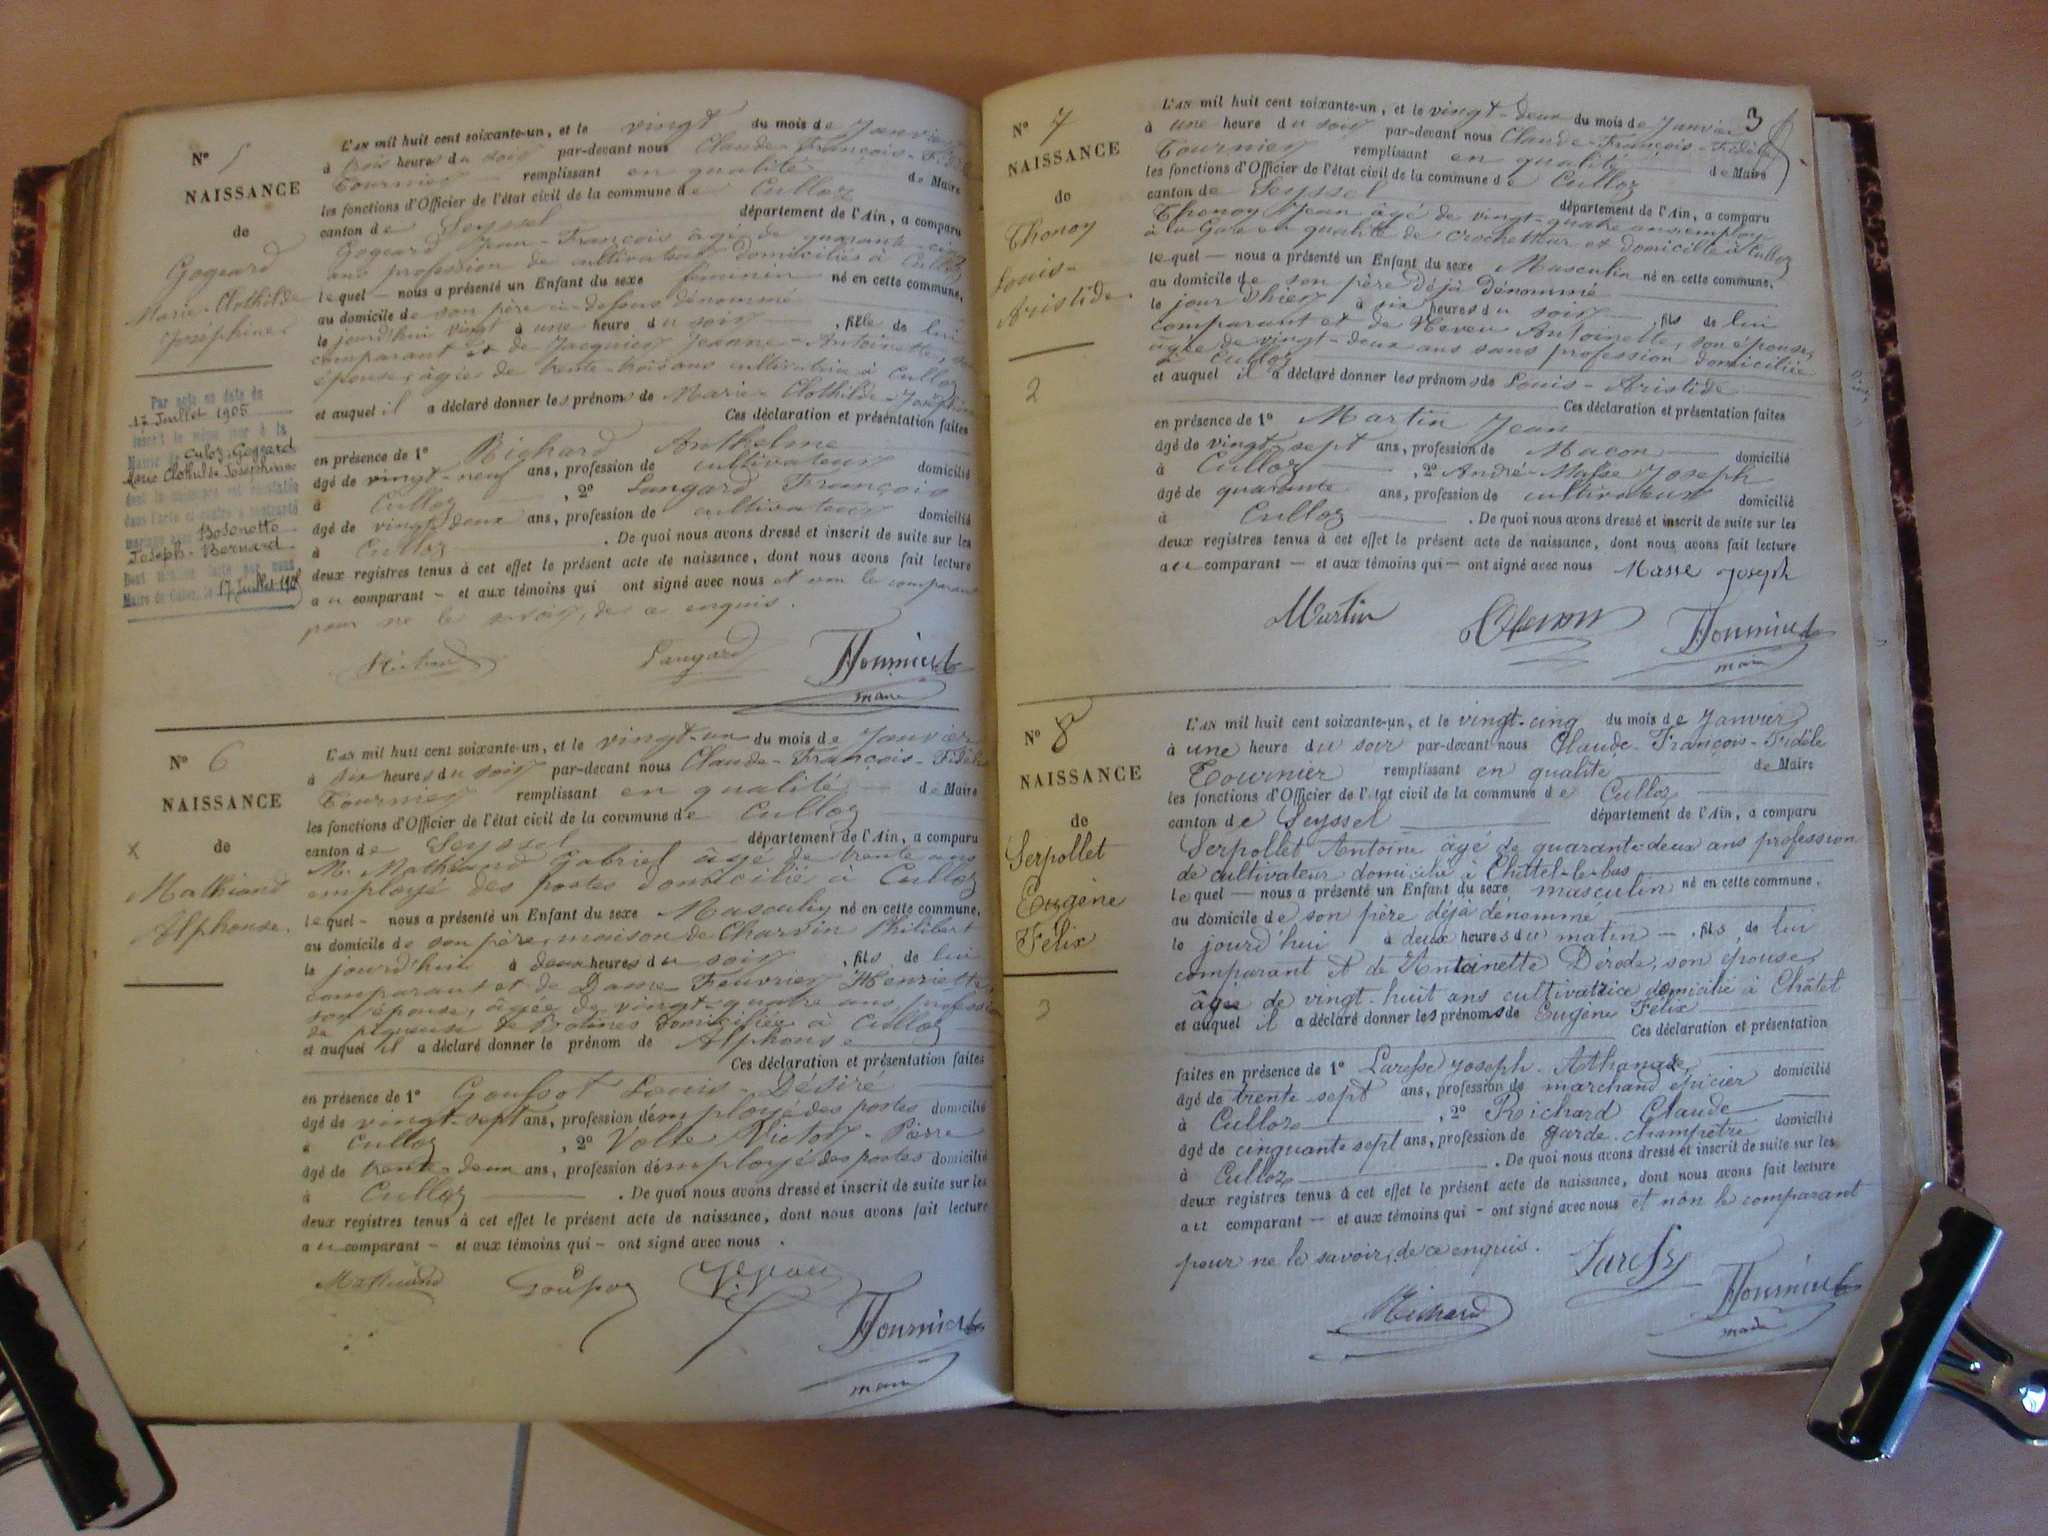 N° 5
NAISSANCE
de
Gogeard
Marie-Clothilde
Joséphine
Par acte en date du
17 Juillet 1905
inscrit le même jour à la
Mairie de Culoz, Gogeard
Marie Clothilde Joséphine
dont la naissance est constatée
dans l'acte ci-contre a contracté
mariage avec Bosonetto
Joseph-Bernard
Dont mention faite par nous
Maire de Culoz, le 17 Juillet 1905
L'AN mil huit cent soixante-un, et le vingt du mois de Janvier
à trois heures du soir par-devant nous Claude-François-Fidèle
Tournier remplissant en qualité de Maire
les fonctions d'Officier de l'état civil de la commune de Culloz
canton de Seyssel département de l'Ain, a comparu
Gogeard Jean-François âgé de quarante-cinq
ans profession de cultivateur domicilié à Culloz
lequel — nous a présenté un Enfant du sexe féminin né en cette commune,
au domicile de son père ci-dessus dénommé
le jourd'hui vingt à une heure du soir, fille de lui
comparant et de Jacquier Jeanne-Antoinette, son
épouse, âgée de trente-trois ans cultivatrice à Culloz
et auquel il a déclaré donner les prénoms de Marie-Clothilde-Joséphine
Ces déclaration et présentation faites
en présence de 1° Richard Anthelme
âgé de vingt-neuf ans, profession de cultivateur domicilié
à Culloz, 2° Langard François
âgé de vingt-deux ans, profession de cultivateur domicilié
à Culloz. De quoi nous avons dressé et inscrit de suite sur les
deux registres tenus à cet effet le présent acte de naissance, dont nous avons fait lecture
au comparant — et aux témoins qui ont signé avec nous et non le comparant
pour ne le savoir, de ce enquis.
Richard Langard Tournier
maire
N° 6
NAISSANCE
x de
Mathiand
Alphonse.
L'AN mil huit cent soixante-un, et le vingt-un du mois de Janvier
à six heures du soir par-devant nous Claude-François-Fidèle
Tournier remplissant en qualité de Maire
les fonctions d'Officier de l'état civil de la commune de Culloz
canton de Seyssel département de l'Ain, a comparu
M. Mathiand Gabriel âgé de trente ans
employé des postes domicilié à Culloz
lequel — nous a présenté un Enfant du sexe Masculin né en cette commune,
au domicile de son père, maison de Charvin Philibert
le jourd'hui à deux heures du soir, fils de lui
comparant et de Dame Feuvrier Henriette,
son épouse, âgée de vingt-quatre ans, profession
de piqueuse de Botines domiciliée à Culloz
et auquel il a déclaré donner le prénom de Alphonse
Ces déclaration et présentation faites
en présence de 1° Goussot Louis-Désiré
âgé de vingt-sept ans, profession d'employé des postes domicilié
à Culloz, 2° Victor-Pierre
âgé de trente-deux ans, profession d'employé des postes domicilié
à Culloz. De quoi nous avons dressé et inscrit de suite sur les
deux registres tenus à cet effet le présent acte de naissance, dont nous avons fait lecture
au comparant — et aux témoins qui — ont signé avec nous.
Mathiand Goussot
Tournier
maire
3
N° 7
NAISSANCE
de
Thonoy
Louis-
Aristide.
2
L'AN mil huit cent soixante-un, et le vingt-deux du mois de Janvier
à une heure du soir par-devant nous Claude-François-Fidèle
Tournier remplissant en qualité de Maire
les fonctions d'Officier de l'état civil de la commune de Culloz
canton de Seyssel département de l'Ain, a comparu
Thonoy Jean âgé de vingt-quatre ans employé
à la Gare en qualité de crocheteur et domicilié à Culloz
lequel — nous a présenté un Enfant du sexe Masculin né en cette commune,
au domicile de son père déjà dénommé
le jour d'hier à six heures du soir, fils de lui
comparant et de Neveu Antoinette, son épouse,
âgée de vingt-deux ans sans profession domiciliée
à Culloz
et auquel il a déclaré donner les prénoms de Louis-Aristide
Ces déclaration et présentation faites
en présence de 1° Martin Jean
âgé de vingt-sept ans, profession de Macon domicilié
à Culloz, 2° André-Masse Joseph
âgé de quarante ans, profession de cultivateur domicilié
à Culloz. De quoi nous avons dressé et inscrit de suite sur les
deux registres tenus à cet effet le présent acte de naissance, dont nous avons fait lecture
au comparant — et aux témoins qui — ont signé avec nous Masse Joseph
Martin Thonoy Tournier
maire
N° 8
NAISSANCE
de
Serpollet
Eugène
Félix
3
L'AN mil huit cent soixante-un, et le vingt-cinq du mois de Janvier
à une heure du soir par-devant nous Claude-François-Fidèle
Tournier remplissant en qualité de Maire
les fonctions d'Officier de l'état civil de la commune de Culloz
canton de Seyssel département de l'Ain, a comparu
Serpollet Antoine âgé de quarante-deux ans profession
de cultivateur domicilié à Châtel-le-bas
lequel — nous a présenté un Enfant du sexe masculin né en cette commune,
au domicile de son père déjà dénommé
le jourd'hui à deux heures du matin —, fils de lui
comparant et de Antoinette Dérode, son épouse
âgée de vingt-huit ans cultivatrice domicilié à Châtel
et auquel il a déclaré donner les prénoms de Eugène Félix
Ces déclaration et présentation
faites en présence de 1° Laresse Joseph-Athanase,
âgé de trente-sept ans, profession de marchand épicier domicilié
à Culloz, 2° Richard Claude
âgé de cinquante-sept ans, profession de garde-champêtre domicilié
à Culloz. De quoi nous avons dressé et inscrit de suite sur les
deux registres tenus à cet effet le présent acte de naissance, dont nous avons fait lecture
au comparant — et aux témoins qui - ont signé avec nous et non le comparant
pour ne le savoir, de ce enquis. Laresse
Richard Tournier
maire